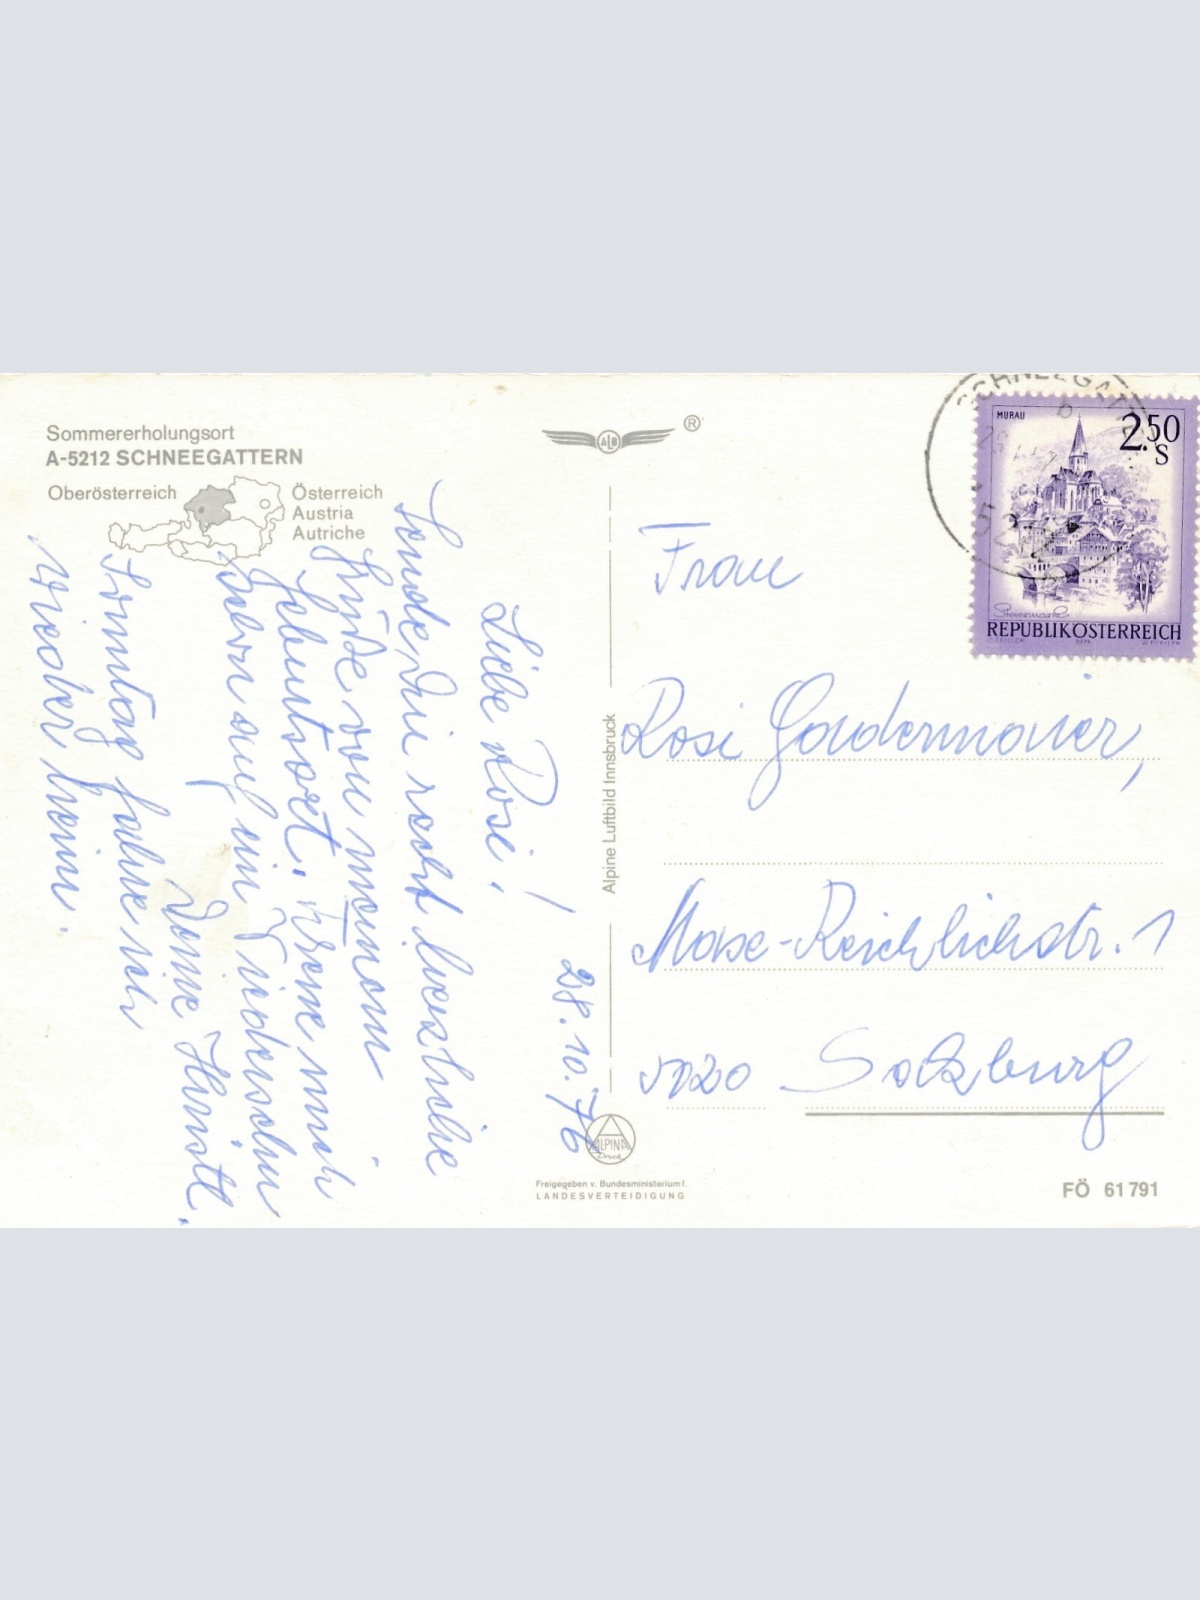 Sommererholungsort
A-5212 SCHNEEGATTERN
Oberösterreich
Österreich
Austria
Autriche
28.10.76
Liebe Rosi!
Sende Dir recht herzliche
Grüße von meinem
Geburtsort. Freue mich
schon auf ein Wiedersehn
Deine Christl.
Sonntag fahre ich
wieder heim.
Alpine Luftbild Innsbruck
ALB
®
ALPINA
Druck
Freigegeben v. Bundesministerium f.
LANDESVERTEIDIGUNG
SCHNEEGATT
b
MURAU
2.50
S
REPUBLIK ÖSTERREICH
Frau
Rosi Gondermaier,
Max-Reichlichstr. 1
5020 Salzburg
FÖ 61 791